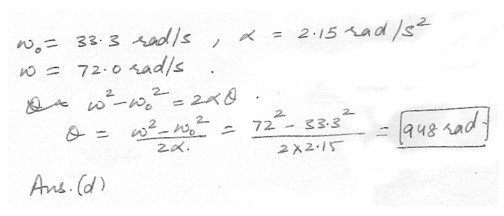 ω₀ = 33.3 rad/s , α = 2.15 rad/s²
ω = 72.0 rad/s .
ω² - ω₀² = 2αθ .
θ = (ω² - ω₀²)/(2α.) = (72² - 33.3²)/(2×2.15) = 948 rad
Ans. (d)